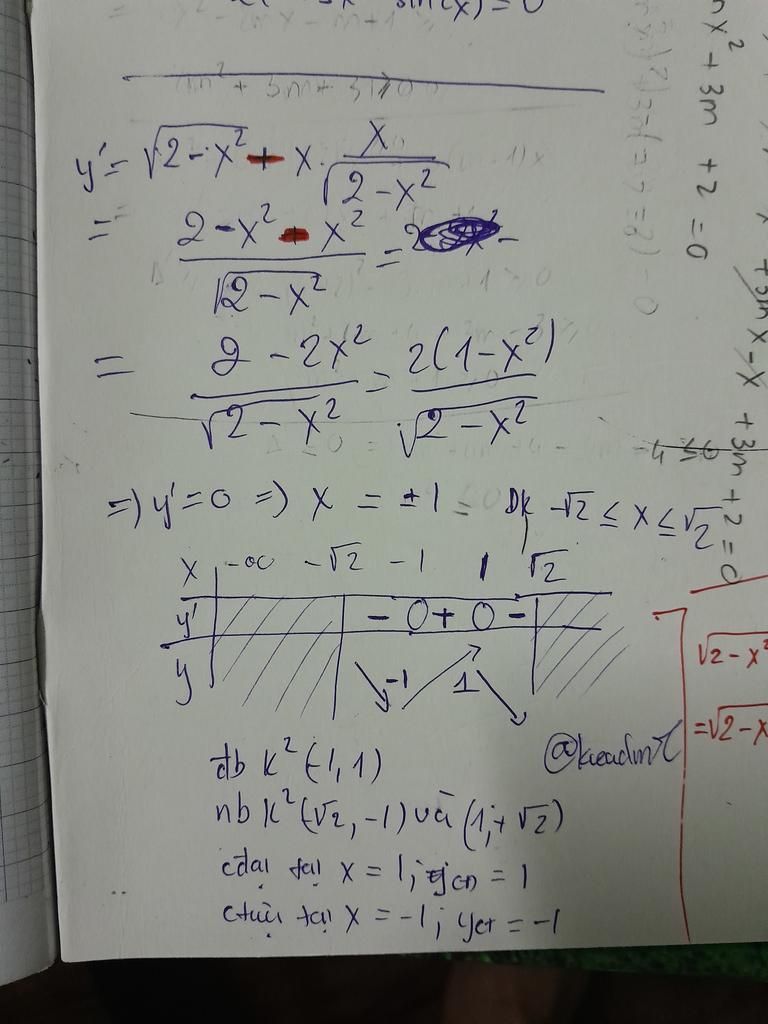 sin(x) = 0
y' = √(2-x²) - x · x/√(2-x²)
= (2-x² - x²)/√(2-x²) =
= (2 - 2x²)/√(2-x²) = 2(1-x²)/√(2-x²)
=) y' = 0 =) x = ±1 = ĐK -√2 ≤ x ≤ √2
x -∞ -√2 -1 1 √2
y' - 0 + 0 -
y -1 1
đb k² (-1, 1)
nb k² (√2, -1) và (1, +√2)
cđại tại x = 1; ycđ = 1
ctiểu tại x = -1; yct = -1
x² + 3m + 2 = 0
x - x + 3m + 2 = 0
√2-x²
=√2-x